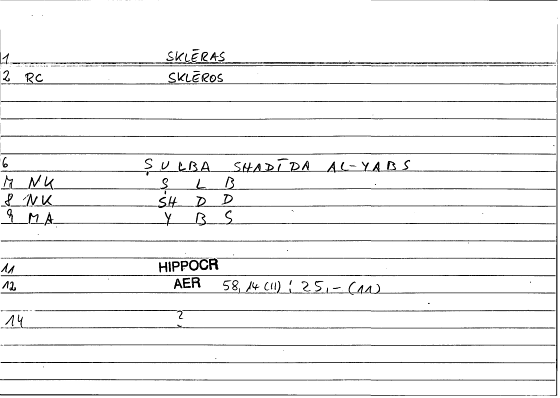 1 SKLĒRAS
2 RC SKLĒROS
6 ṢULBA SHADĪDA AL-YABS
7 NK Ṣ L B
8 NK SH D D
9 MA Y B S
11 HIPPOCR
12 AER 58,14 (11) ; 25,- (11)
14 ?